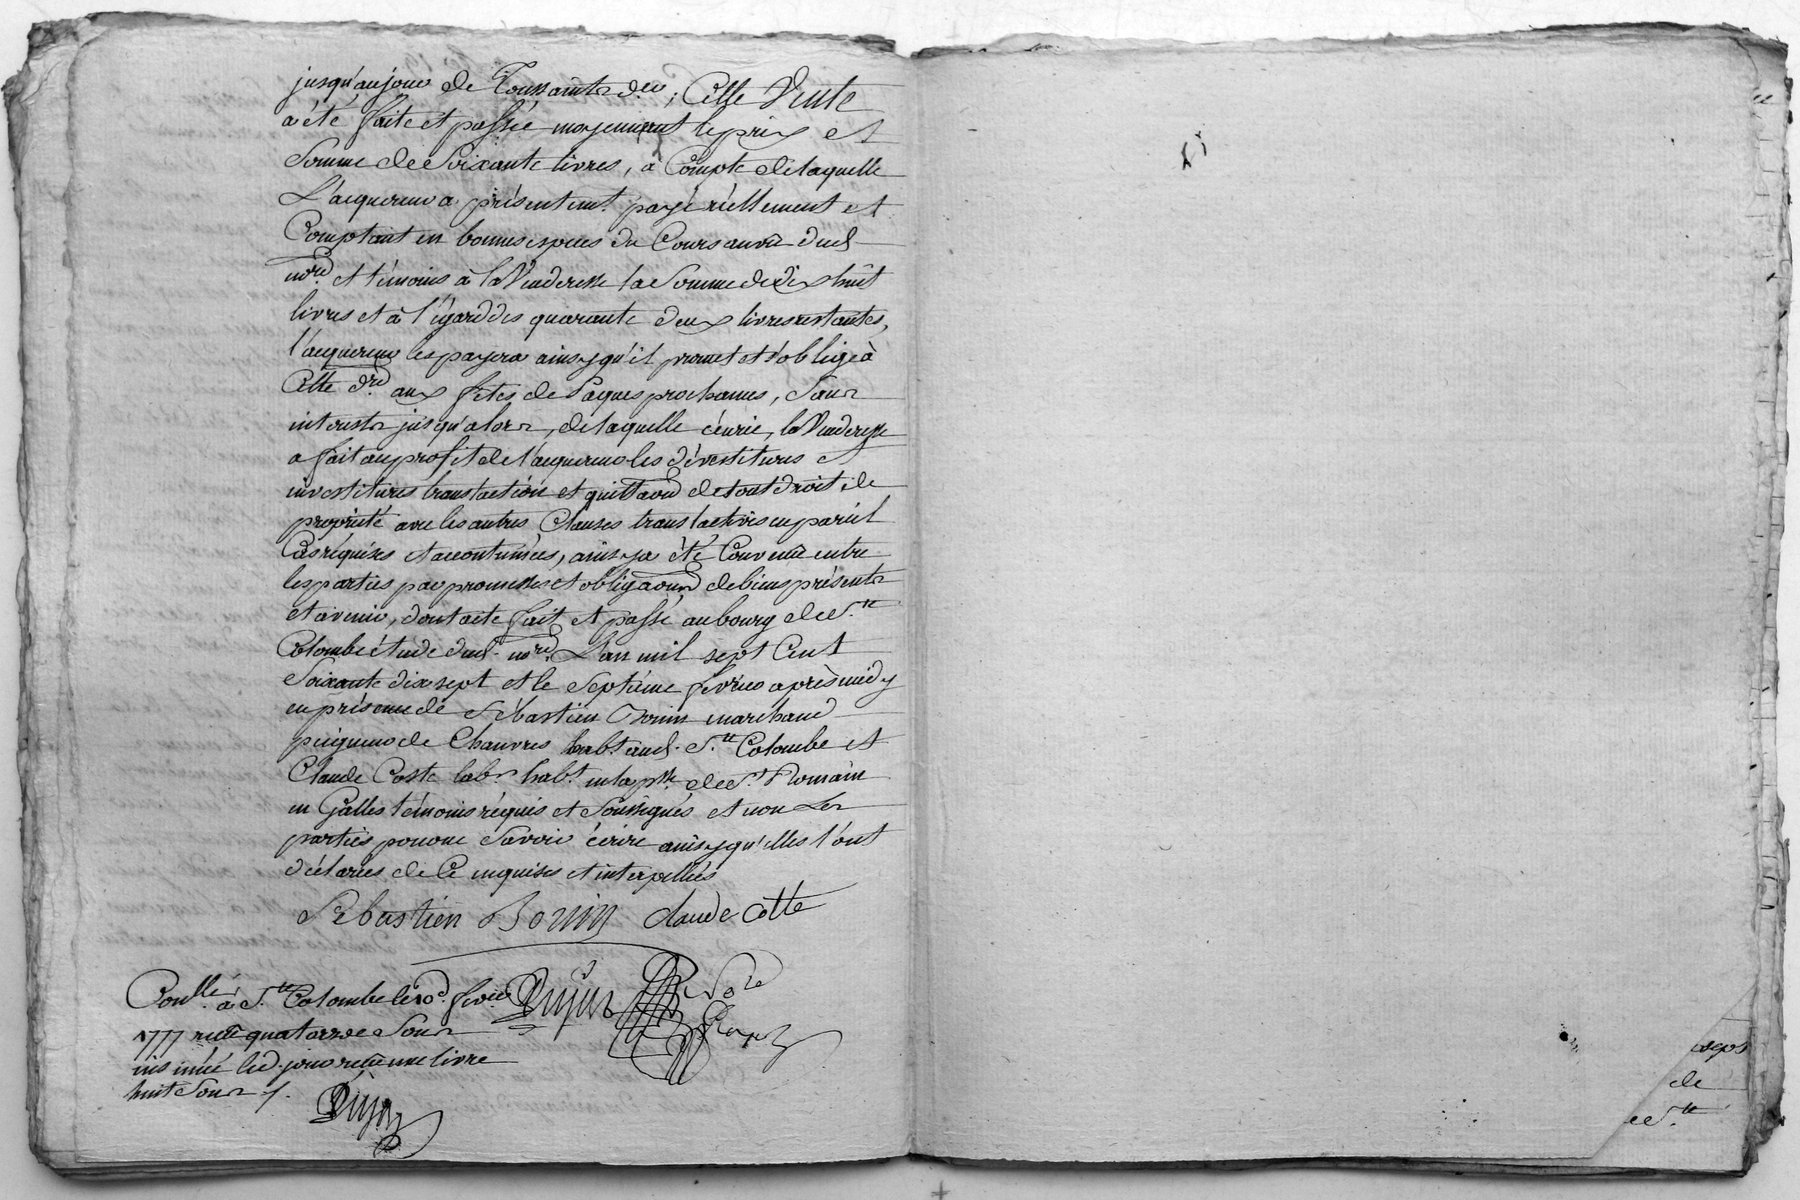 jusqu'au jour de Toussaints der; Cette Vente
a été faitte et passée moyennant le prix et
Somme de Soixante livres, à Compte de laquelle
L'acquereur a présentemt. payé réellement et
Comptant en bonnes especes du Cours au vû dud.
nore. et témoins à la Venderesse la Somme de dix huit
livres et à l'égard des quarante deux livres restantes,
l'acquereur les payera ainsy qu'il promet et s'oblige à
Cette dre. aux fêtes de Paques prochaines, Sans
interests jusqu'alors, de laquelle écurie, la Venderesse
a fait au profit de l'acquereur les dévestitures et
investitures translaction et quittaon de tout droit de
propriété avec les autres Clauses translatives en pareil
Cas réquises et accoutumées, ainsy a été Convenu entre
les parties par promesses et obligaons de biens présents
et avenir, dont acte fait et passé au bourg de Ste.
Colombe étude dud. nore. L'an mil sept Cent
Soixante dix sept et le Septième février après midy
en présence de Sébastien Bonin marchand
peigneur de Chanvres habt. aud. Ste. Colombe et
Claude Coste labr. habt. en la psse. de St. Romain
en Galles témoins réquis et Soussignés et non Les
parties pour ne Savoir écrire ainsy qu'elles l'ont
déclarées de Ce enquises et interpellées
Sébastien Bonin claude Cotte
Conllé. à Ste. Colombe le 10e. février
1777 reçu quatorze Sous
insinué led. jour reçu une livre
huit Sous
sept
de
de Ste.